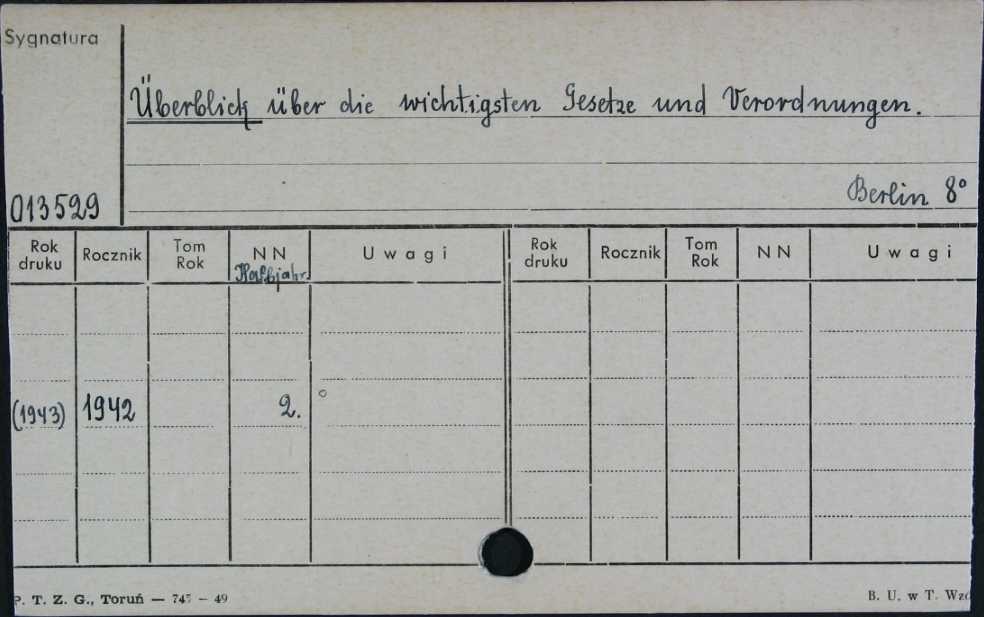 Sygnatura
Überblick über die wichtigsten Gesetze und Verordnungen.
Berlin 8°
013529
Rok druku Rocznik Tom Rok NN Halbjahr. Uwagi Rok druku Rocznik Tom Rok NN Uwagi
(1943) 1942 2.
P. T. Z. G., Toruń — 745 – 49 B. U. w T. Wzó